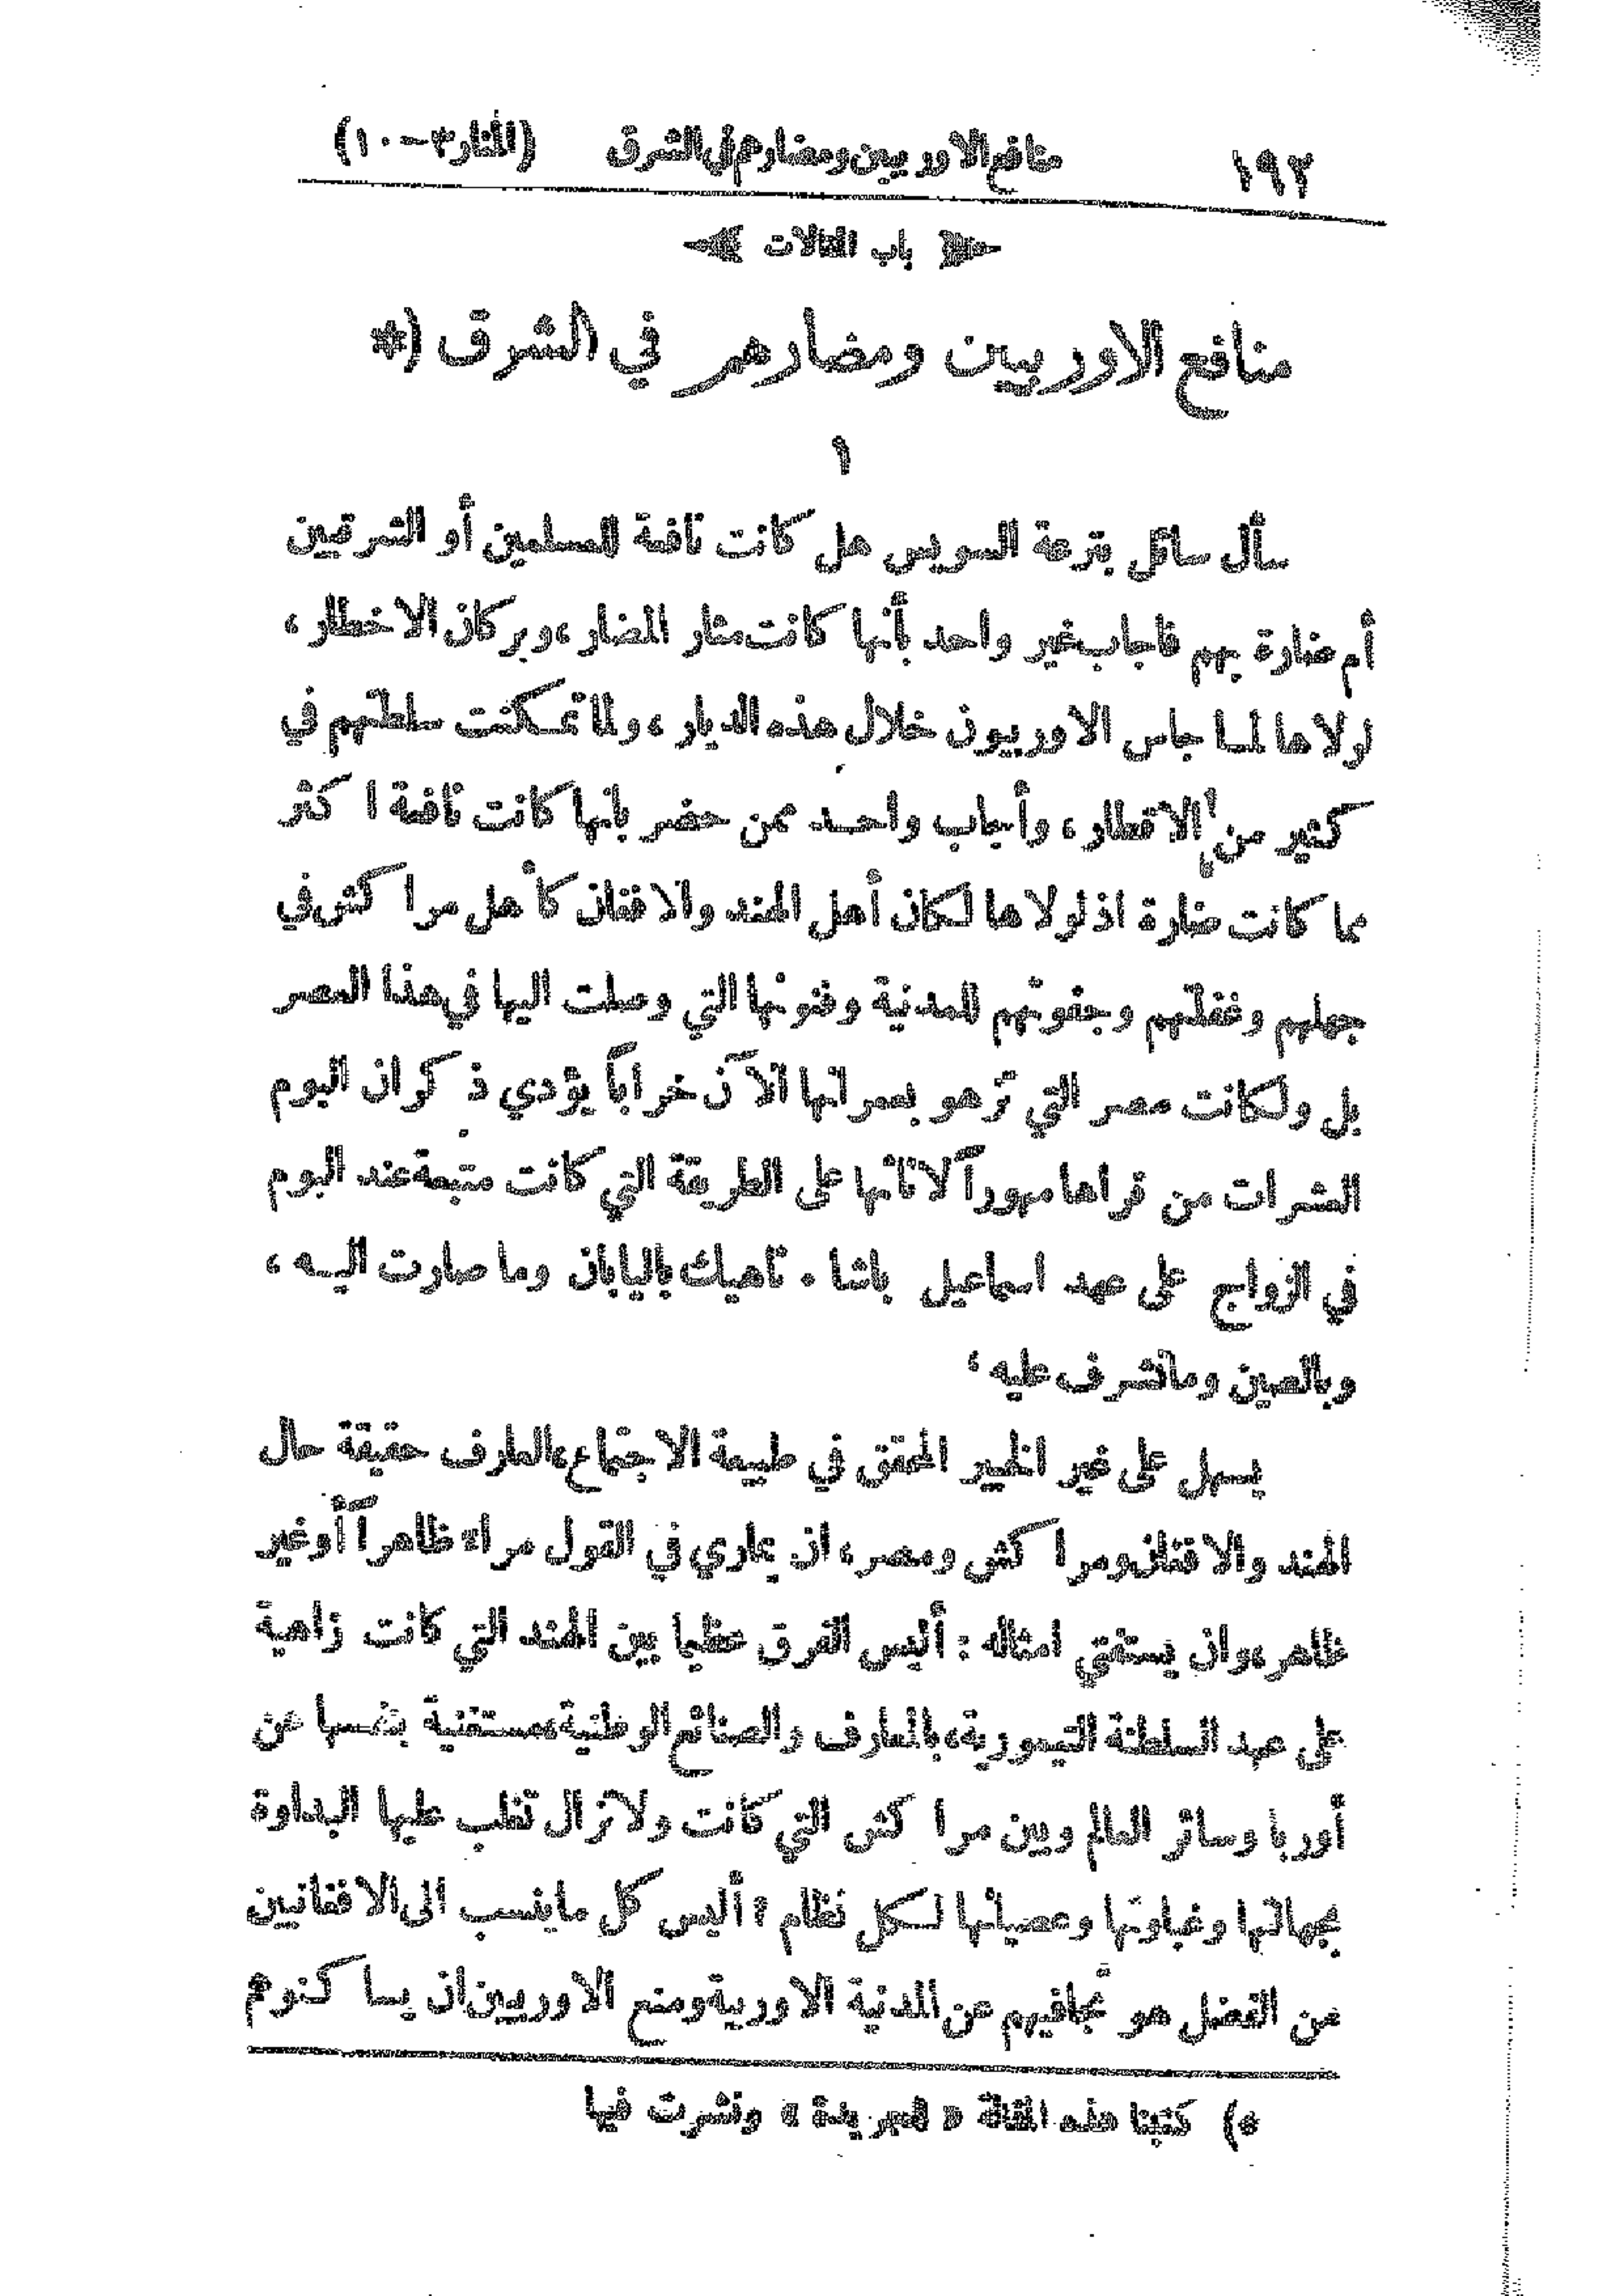 ١٩٢ منافع الاوربيين ومضارهم في الشرق (المنار ٣ — ١٠)
باب المقالات
منافع الاوربيين ومضارهم في الشرق (*
١
سأل سائل بترعة السويس هل كانت نافعة للمسلمين أو الشرقيين
أم ضارة بهم فاجاب غير واحد بأنها كانت مثار المضار، وبركان الاخطار،
لولاها لما جاس الاوربيون خلال هذه الديار، ولما تمكنت سلطتهم في
كثير من الاقطار، وأجاب واحد ممن حضر بانها كانت نافعة اكثر
مما كانت ضارة اذ لولاها لكان أهل الهند والافغان كأهل مراكش في
جهلهم وغفلتهم وجفوتهم للمدنية وفنونها التي وصلت اليها في هذا العصر
بل ولكانت مصر التي تزهو بعمرانها الآن خراباً يؤدي ذكران البوم
العشرات من قراها مهوراً لاناثها على الطريقة التي كانت متبعة عند البوم
في الزواج على عهد اسماعيل باشا . ناهيك باليابان وما صارت اليه ،
وبالصين وما تشرف عليه ،
يسهل على غير الخبير المحقق في طبيعة الاجتماع، العارف حقيقة حال
الهند والافغان ومراكش ومصر، ان يماري في القول مراء ظاهراً أو غير
ظاهر، وان يستفتي امثاله : أليس الفرق عظيما بين الهند التي كانت زاهية
على عهد السلطنة التيمورية، بالمعارف والصنائع الوطنية، مستغنية بنفسها عن
أوربا وسائر العالم وبين مراكش التي كانت ولا تزال تغلب عليها البداوة
بجهالتها وغباوتها وعصيانها لكل نظام ؟ أليس كل ما ينسب الى الافغانيين
من الفضل هو تجافيهم عن المدنية الاوربية ومنع الاوربيين ان يساكنوهم
*) كتبنا هذه المقالة « للجريدة » ونشرت فيها